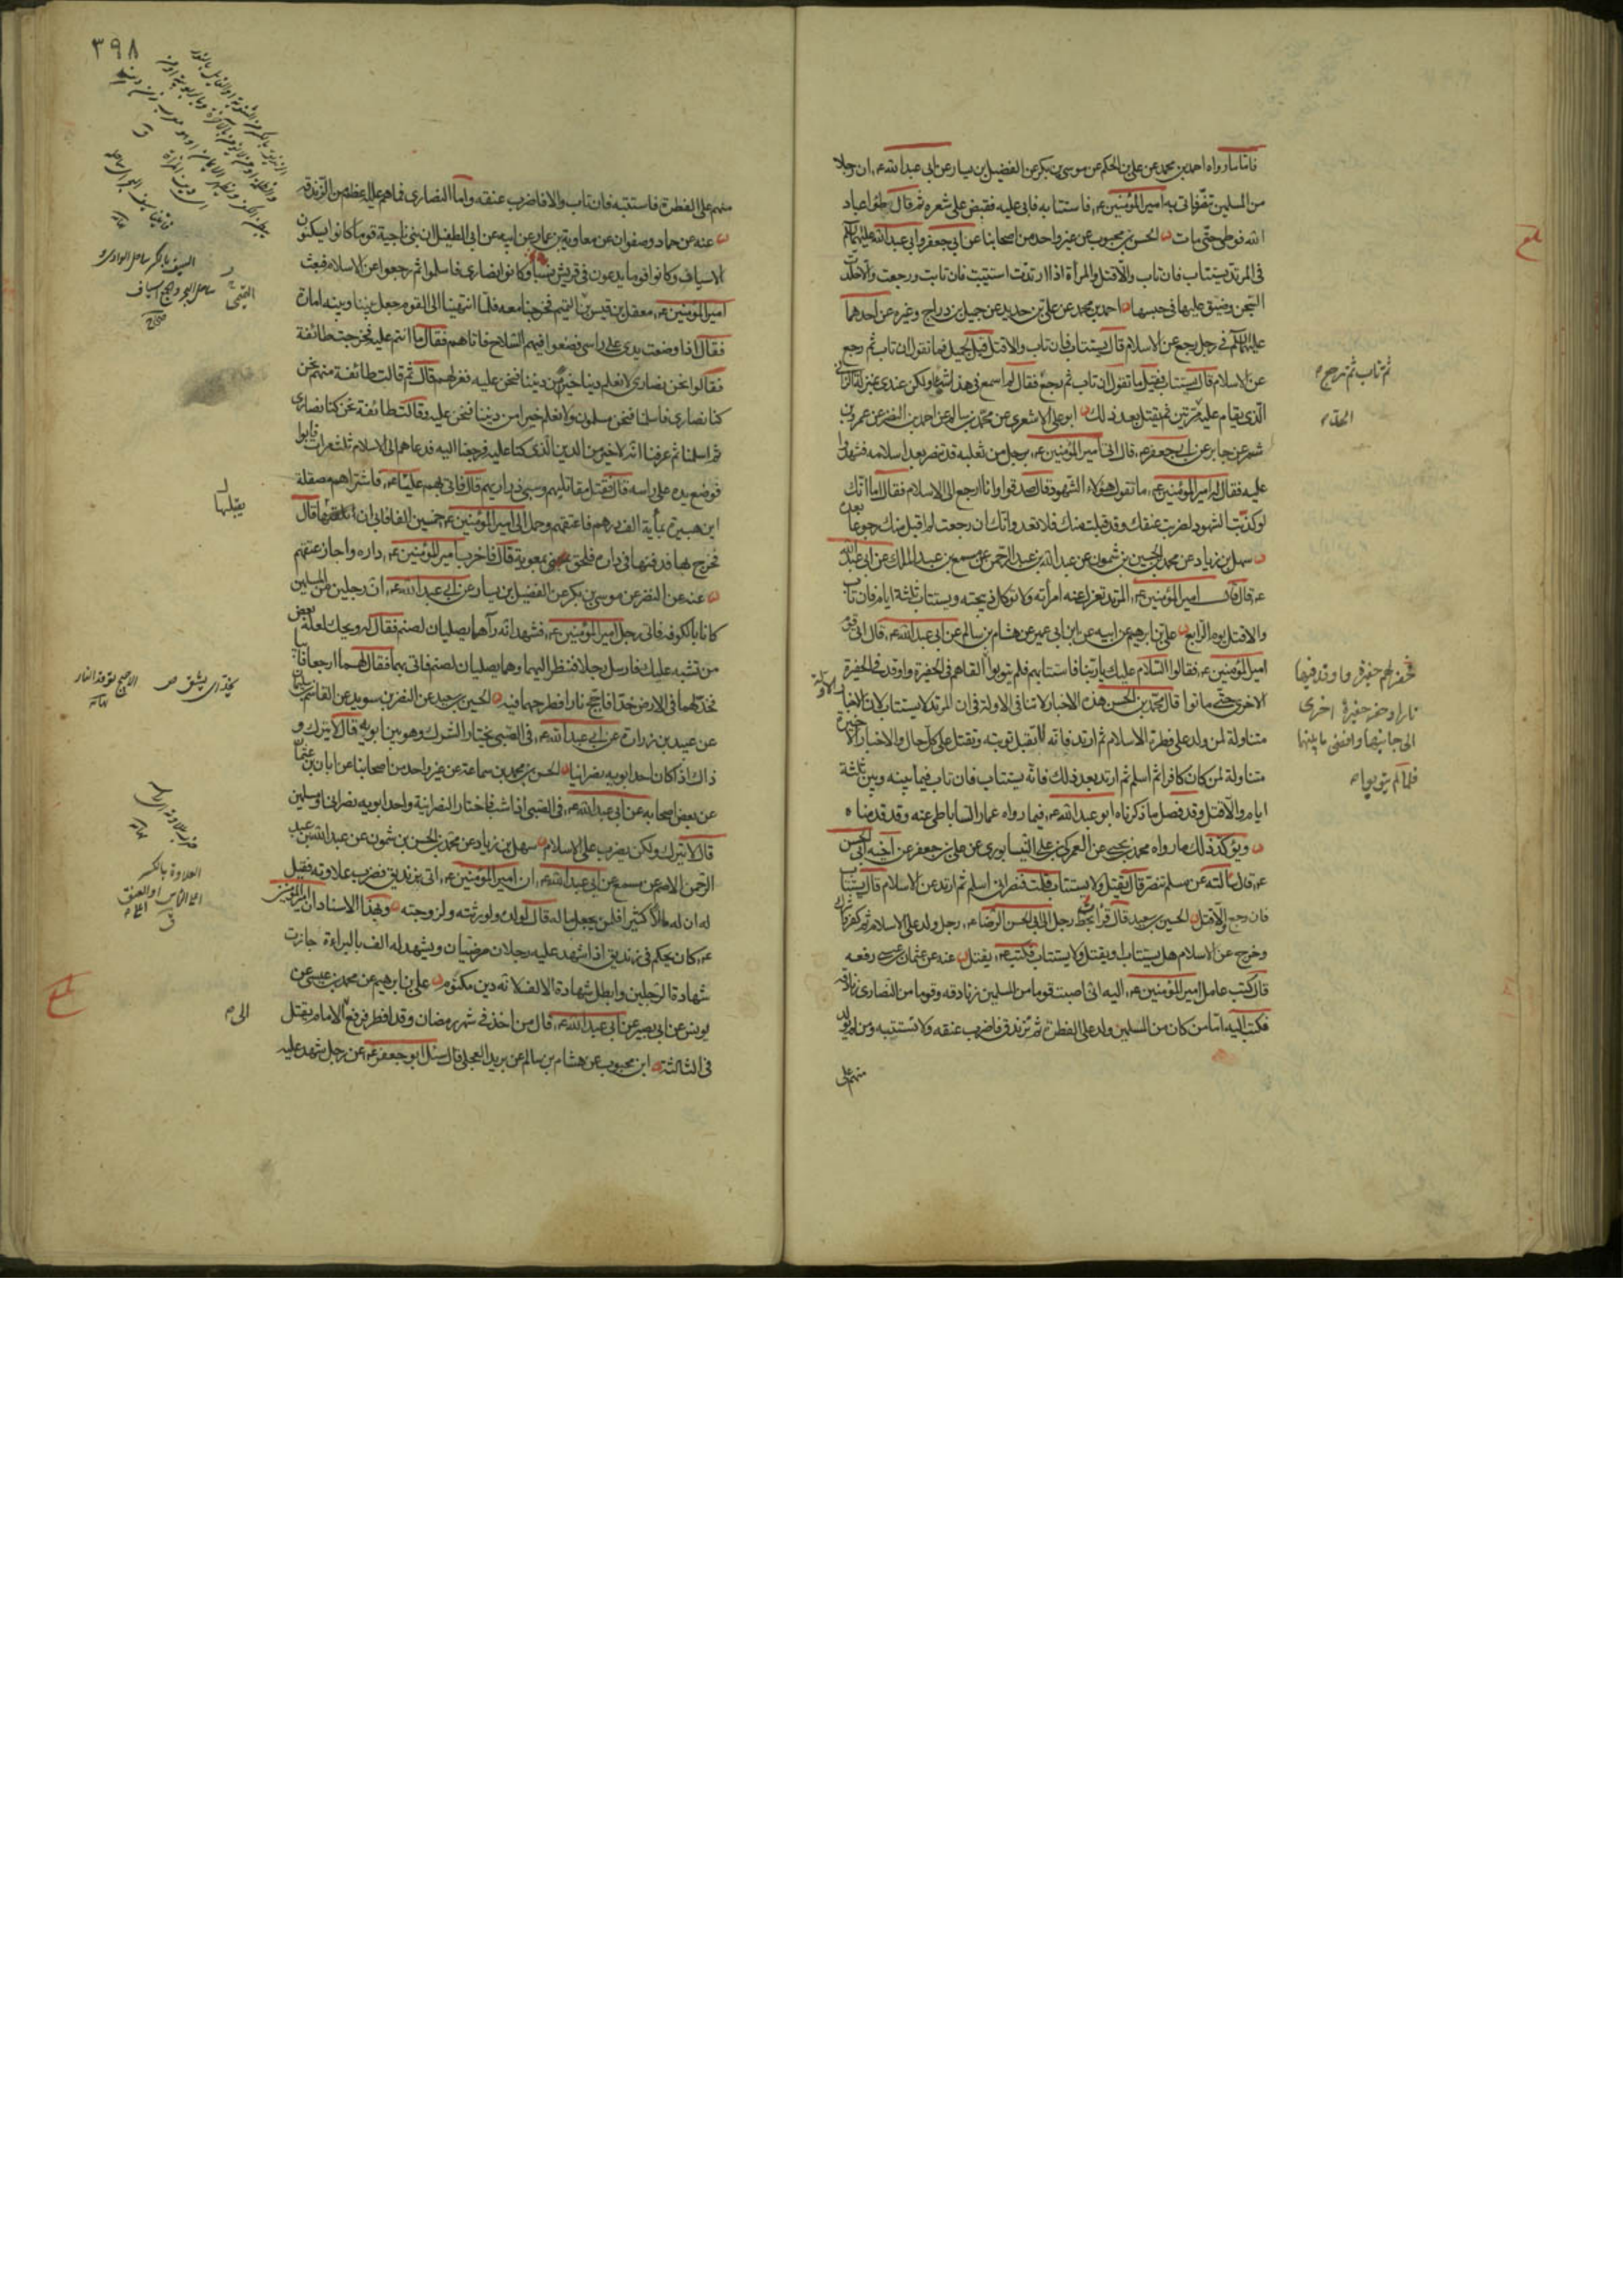 فاما ما رواه احمد بن محمد عن علي بن الحكم عن موسى بن بكر عن الفضيل بن يسار عن ابي عبدالله ع ان رجلا
من المسلمين تنصر فاتى به امير المؤمنين ع فاستتابه فابى عليه فقبض على شعره ثم قال طؤا عباد
الله فوطئ حتى مات الحسن بن محبوب عن غير واحد من اصحابنا عن ابي جعفر وابي عبدالله عليهما السلام
في المرتد يستتاب فان تاب والا قتل والمرأة اذا ارتدت استتيبت فان تابت ورجعت والا خلدت
السجن وضيق عليها في حبسها احمد بن محمد عن علي بن حديد عن جميل بن دراج وغيره عن احدهما
عليهما السلام في رجل رجع عن الاسلام قال يستتاب فان تاب والا قتل قيل لجميل فما تقول ان تاب ثم رجع
عن الاسلام قال يستتاب فقيل ما تقول ان تاب ثم رجع فقال لم اسمع في هذا شيئا ولكن عندي بمنزلة الزاني
الذي يقام عليه مرتين ثم يقتل بعد ذلك ابو علي الاشعري عن محمد بن سالم عن احمد بن النضر عن عمرو بن
شمر عن جابر عن ابي جعفر ع قال اتي امير المؤمنين ع برجل من ثعلبة قد تنصر بعد اسلامه فشهدوا
عليه فقال له امير المؤمنين ع ما تقول هؤلاء الشهود قال صدقوا وانا ارجع الى الاسلام فقال اما انك
لو كذبت الشهود لضربت عنقك وقد قبلت منك فلا تعد وانك ان رجعت لم اقبل منك رجوعا بعده
سهل بن زياد عن محمد بن الحسين بن شمون عن عبدالله بن عبد الرحمن عن مسمع بن عبد الملك عن ابي عبدالله
ع قال قال امير المؤمنين ع المرتد تعزل عنه امرأته ولا تؤكل ذبيحته ويستتاب ثلثة ايام فان تاب
والا قتل يوم الرابع علي بن ابرهيم عن ابيه عن ابن ابي عمير عن هشام بن سالم عن ابي عبدالله ع قال اتى قوم
امير المؤمنين ع فقالوا السلام عليك يا ربنا فاستتابهم فلم يتوبوا القاهم في الحفيرة واوقد في الحفيرة
الاخرى حتى ماتوا قال محمد بن الحسن هذه الاخبار لا تنافي الاولة في ان المرتد لا يستتاب لان الاخبار الاولة
متناولة لمن ولد على فطرة الاسلام ثم ارتد فانه لا تقبل توبته وتقتل على كل حال والاخبار الاخيرة
متناولة لمن كان كافرا ثم اسلم ثم ارتد بعد ذلك فانه يستتاب فان تاب فيما بينه وبين ثلثة
ايام والا قتل وقد فصل ما ذكرناه ابو عبدالله ع فيما رواه عمار الساباطي عنه وقد قدمناه
ويؤكد ذلك ما رواه محمد بن يحيى عن العمركي بن علي النيسابوري عن علي بن جعفر عن اخيه ابي الحسن
ع قال سألته عن مسلم تنصر قال يقتل ولا يستتاب قلت فنصراني اسلم ثم ارتد عن الاسلام قال يستتاب
فان رجع والا قتل الحسين بن سعيد قال قرأت بخط رجل الى ابي الحسن الرضا ع رجل ولد على الاسلام ثم كفر واشرك
وخرج عن الاسلام هل يستتاب او يقتل ولا يستتاب فكتب ع يقتل عنه عن عثمان بن عيسى رفعه
قال كتب عامل امير المؤمنين ع اليه اني اصبت قوما من المسلمين زنادقة وقوما من النصارى زنادقة
فكتب اليه اما من كان من المسلمين ولد على الفطرة ثم تزندق فاضرب عنقه ولا تستتبه ومن لم يولد
منهم على
ثم تاب ثم رجع
فحفر لهم حفيرة واوقد فيها
نارا وحفر حفيرة اخرى
الى جانبها وافضى ما بينهما
فلما لم يتوبوا
٣٩٨
منهم على الفطرة فاستتبه فان تاب والا فاضرب عنقه واما النصارى فما هم عليه اعظم من الزندقة
عنه عن حماد وصفوان عن معاوية بن عمار عن ابيه عن ابي الطفيل ان بني ناجية قوما كانوا يسكنون
الاسياف وكانوا قوما يدعون في قريش نسبا وكانوا نصارى فاسلموا ثم رجعوا عن الاسلام فبعث
امير المؤمنين ع معقل بن قيس التميمي فخرجنا معه فلما انتهينا الى القوم جعل بيننا وبينه امارة
فقال اذا وضعت يدي على راسي فضعوا فيهم السلاح فاتاهم فقال ما انتم عليه فخرجت طائفة
فقالوا نحن نصارى لا نعلم دينا خيرا من ديننا فنحن عليه فعزلهم قال ثم قالت طائفة منهم نحن
كنا نصارى فاسلمنا فنحن مسلمون لا نعلم خيرا من ديننا فنحن عليه وقالت طائفة نحن كنا نصارى
ثم اسلمنا ثم عرفنا انه لا خير من الدين الذي كنا عليه فرجعنا اليه فدعاهم الى الاسلام ثلث مرات فابوا
فوضع يده على راسه قال فقتل مقاتليهم وسبى ذراريهم قال فاتى بهم عليا ع فاشتراهم مصقلة
ابن هبيرة بمأية الف درهم فاعتقهم وحمل الى امير المؤمنين ع خمسين الفا فابى ان قال
فخرج بها فدفنها في داره فلحق بمعوية قال فاخرب امير المؤمنين ع داره واجاز عتقهم
عنه عن النضر عن موسى بن بكر عن الفضيل بن يسار عن ابي عبدالله ع ان رجلين من المسلمين
كانا بالكوفة فاتى رجل امير المؤمنين ع فشهد انه رآهما يصليان لصنم فقال له ويحك لعله بعض
من تشبه عليك فارسل رجلا فنظر اليهما وهما يصليان لصنم فاتى بهما فقال لهما ارجعا فابيا
فخد لهما في الارض خدا فاجج نارا فطرحهما فيه الحسين بن سعيد عن النضر بن سويد عن القاسم بن سليمان
عن عبيد بن زرارة عن ابي عبدالله ع في الصبي يختار الشرك وهو بين ابويه قال لا يترك و
ذاك اذا كان احد ابويه نصرانيا الحسن بن محمد بن سماعة عن غير واحد من اصحابنا عن ابان بن عثمان
عن بعض اصحابه عن ابي عبدالله ع في الصبي اذا شب فاختار النصرانية واحد ابويه نصراني او مسلمين
قال لا يترك ولكن يضرب على الاسلام سهل بن زياد عن محمد بن الحسن بن شمون عن عبدالله بن عبد
الرحمن الاصم عن مسمع عن ابي عبدالله ع ان امير المؤمنين ع اتي بزنديق فضرب علاوته فقيل
له ان له مالا كثيرا فلمن يجعل ماله قال لولده ولورثته ولزوجته وبهذا الاسناد ان امير المؤمنين
ع كان يحكم في زنديق اذا شهد عليه رجلان مرضيان ويشهد له الف بالبراءة جازت
شهادة الرجلين وابطل شهادة الالف لانه دين مكتوم علي بن ابرهيم عن محمد بن عيسى عن
يونس عن ابي بصير عن ابي عبدالله ع قال من اخذ في شهر رمضان وقد افطر فرفع الامام يقتل
في الثالثة ابن محبوب عن هشام بن سالم عن بريد العجلي قال سئل ابو جعفر ع عن رجل شهد عليه
السيف بالكسر ساحل الوادي
ساحل البحر والجمع اسياف
صحاح
يقبلها
الاجيج توقد النار
العلاوة بالكسر
اعلى الراس او العنق
الى